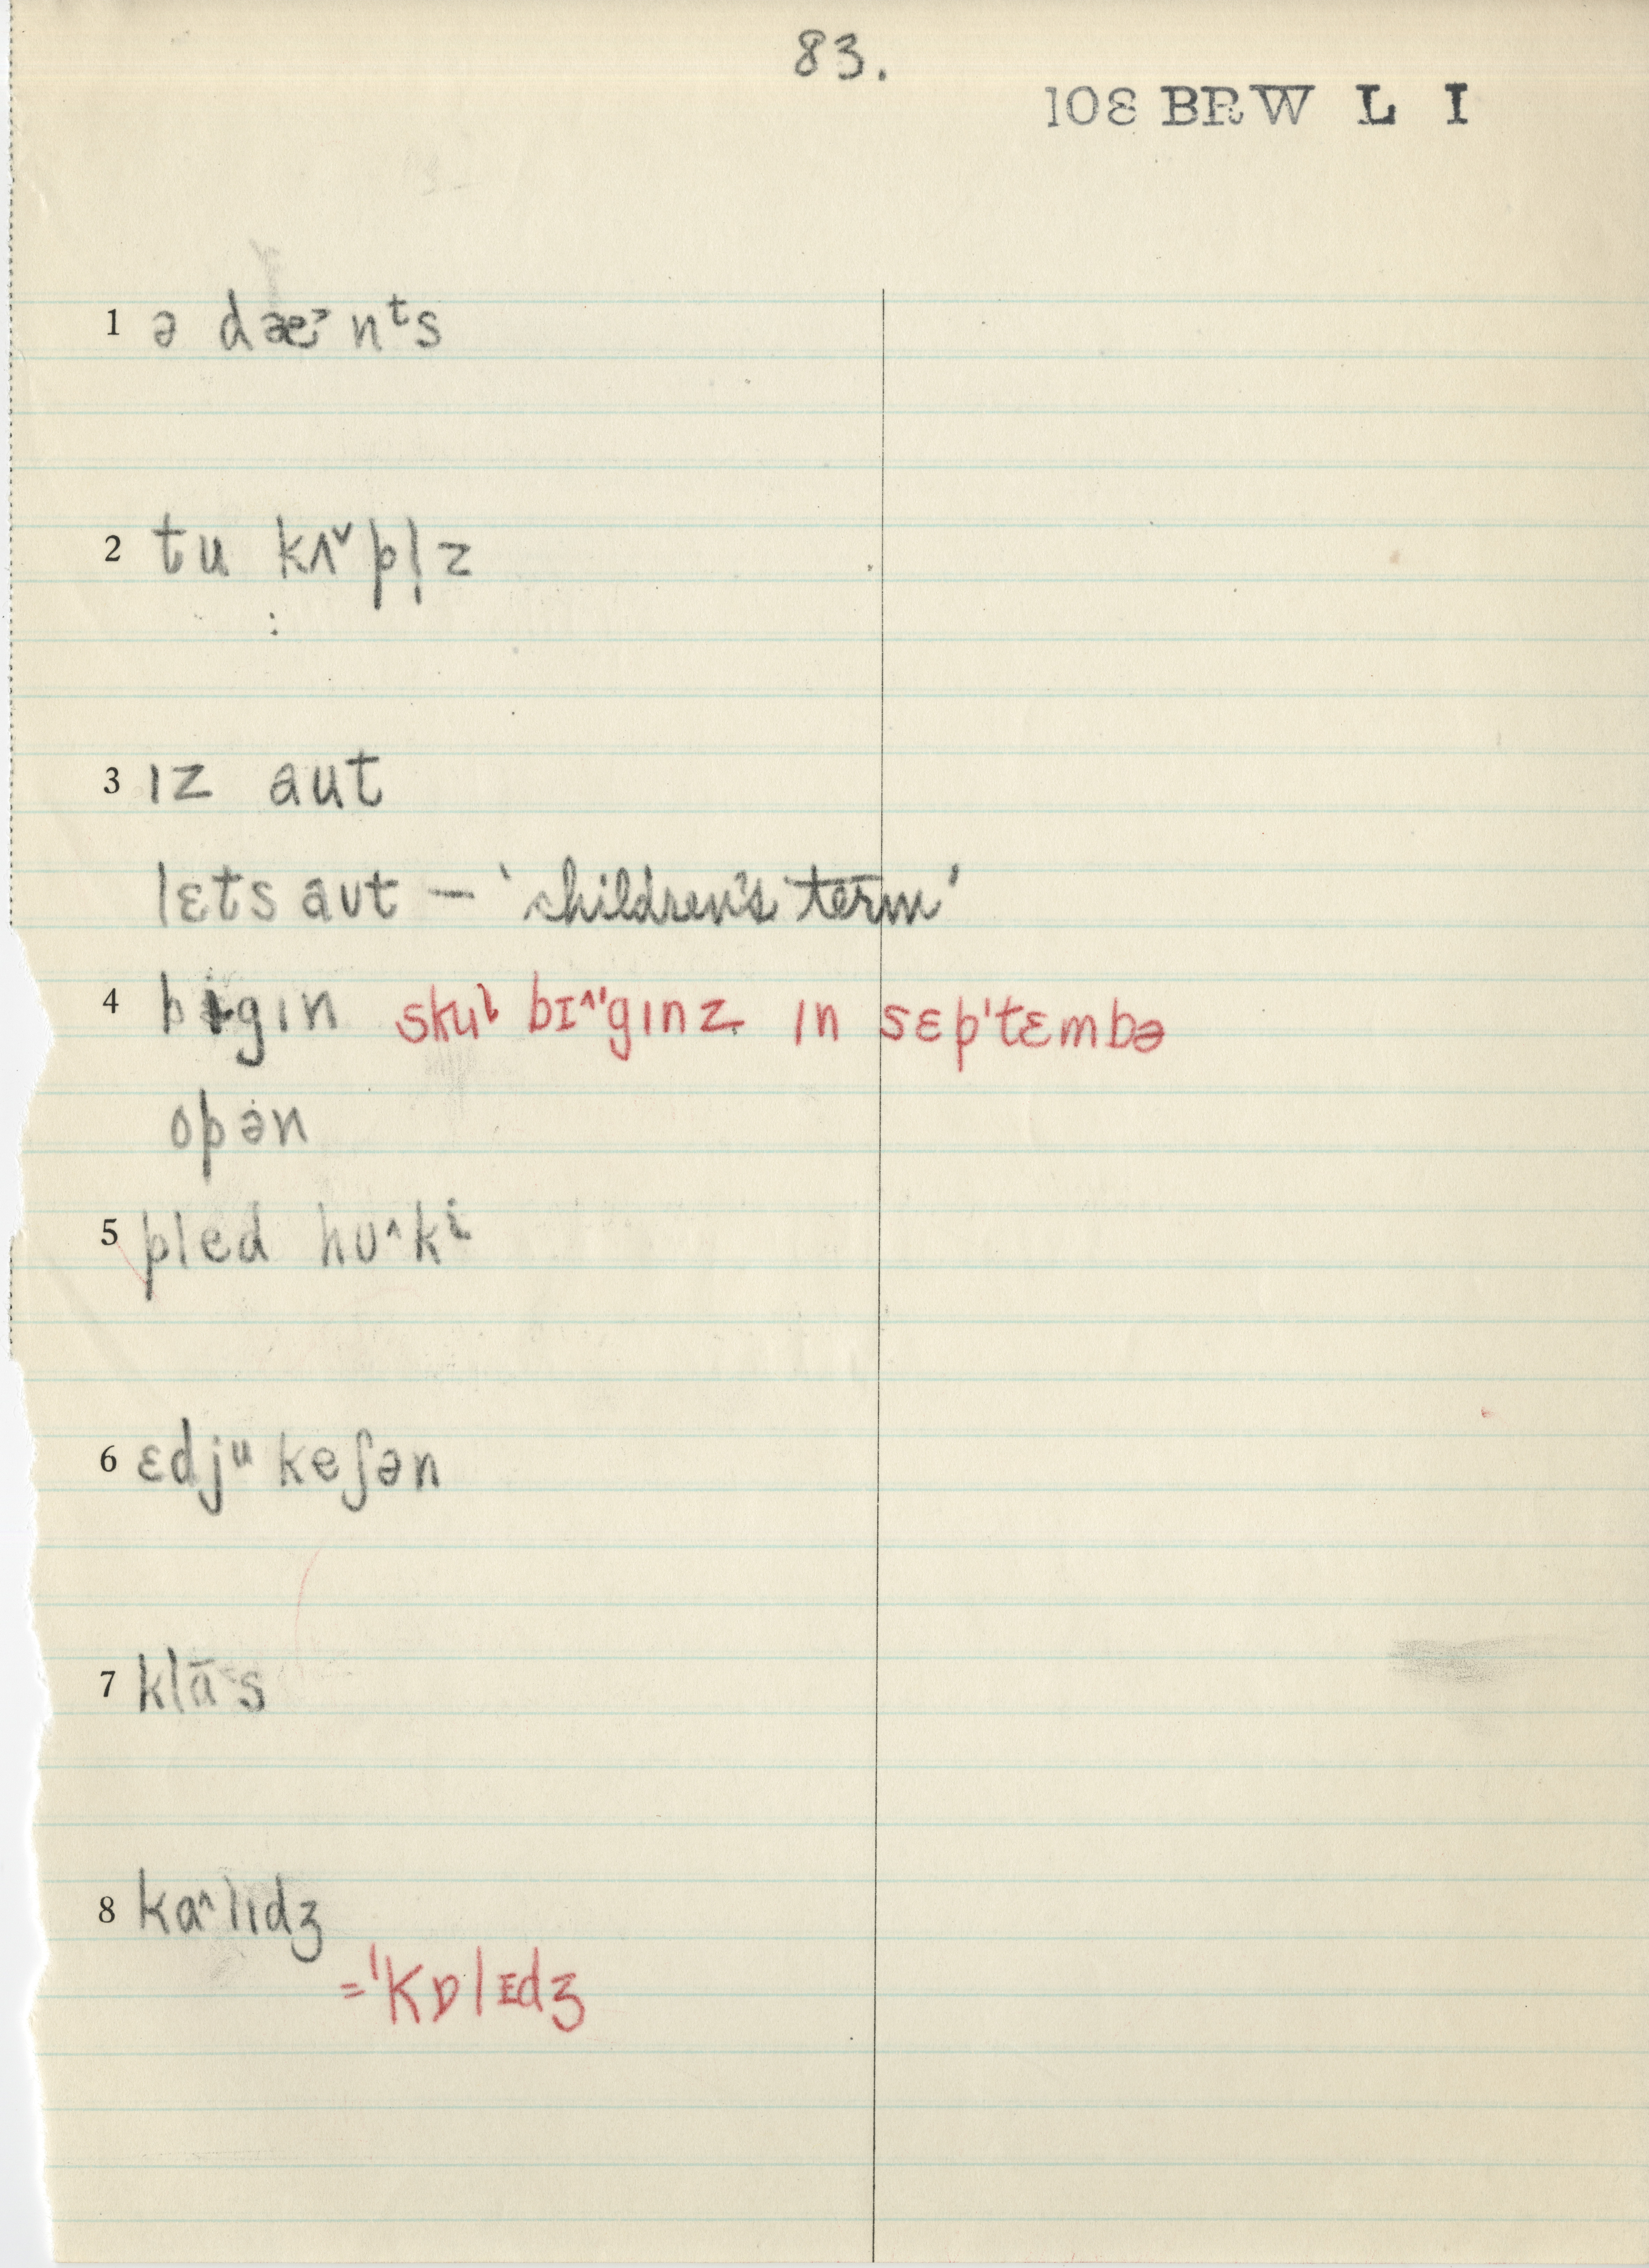 83.
108 BRW L I
1 ə dæ˃nᵗs
2 tu kʌ˅pl̩z
3 ɪz aut
lɛts aʊt – 'children's term'
4 bɪgɪn skuˡ bɪ^'gɪnz ɪn sɛp'tɛmbə
opən
5 pled hʊ^kⁱ
6 ɛdjᵘkeʃən
7 kla-s
8 kɑ^lɪdʒ
='kɒlɪdʒ